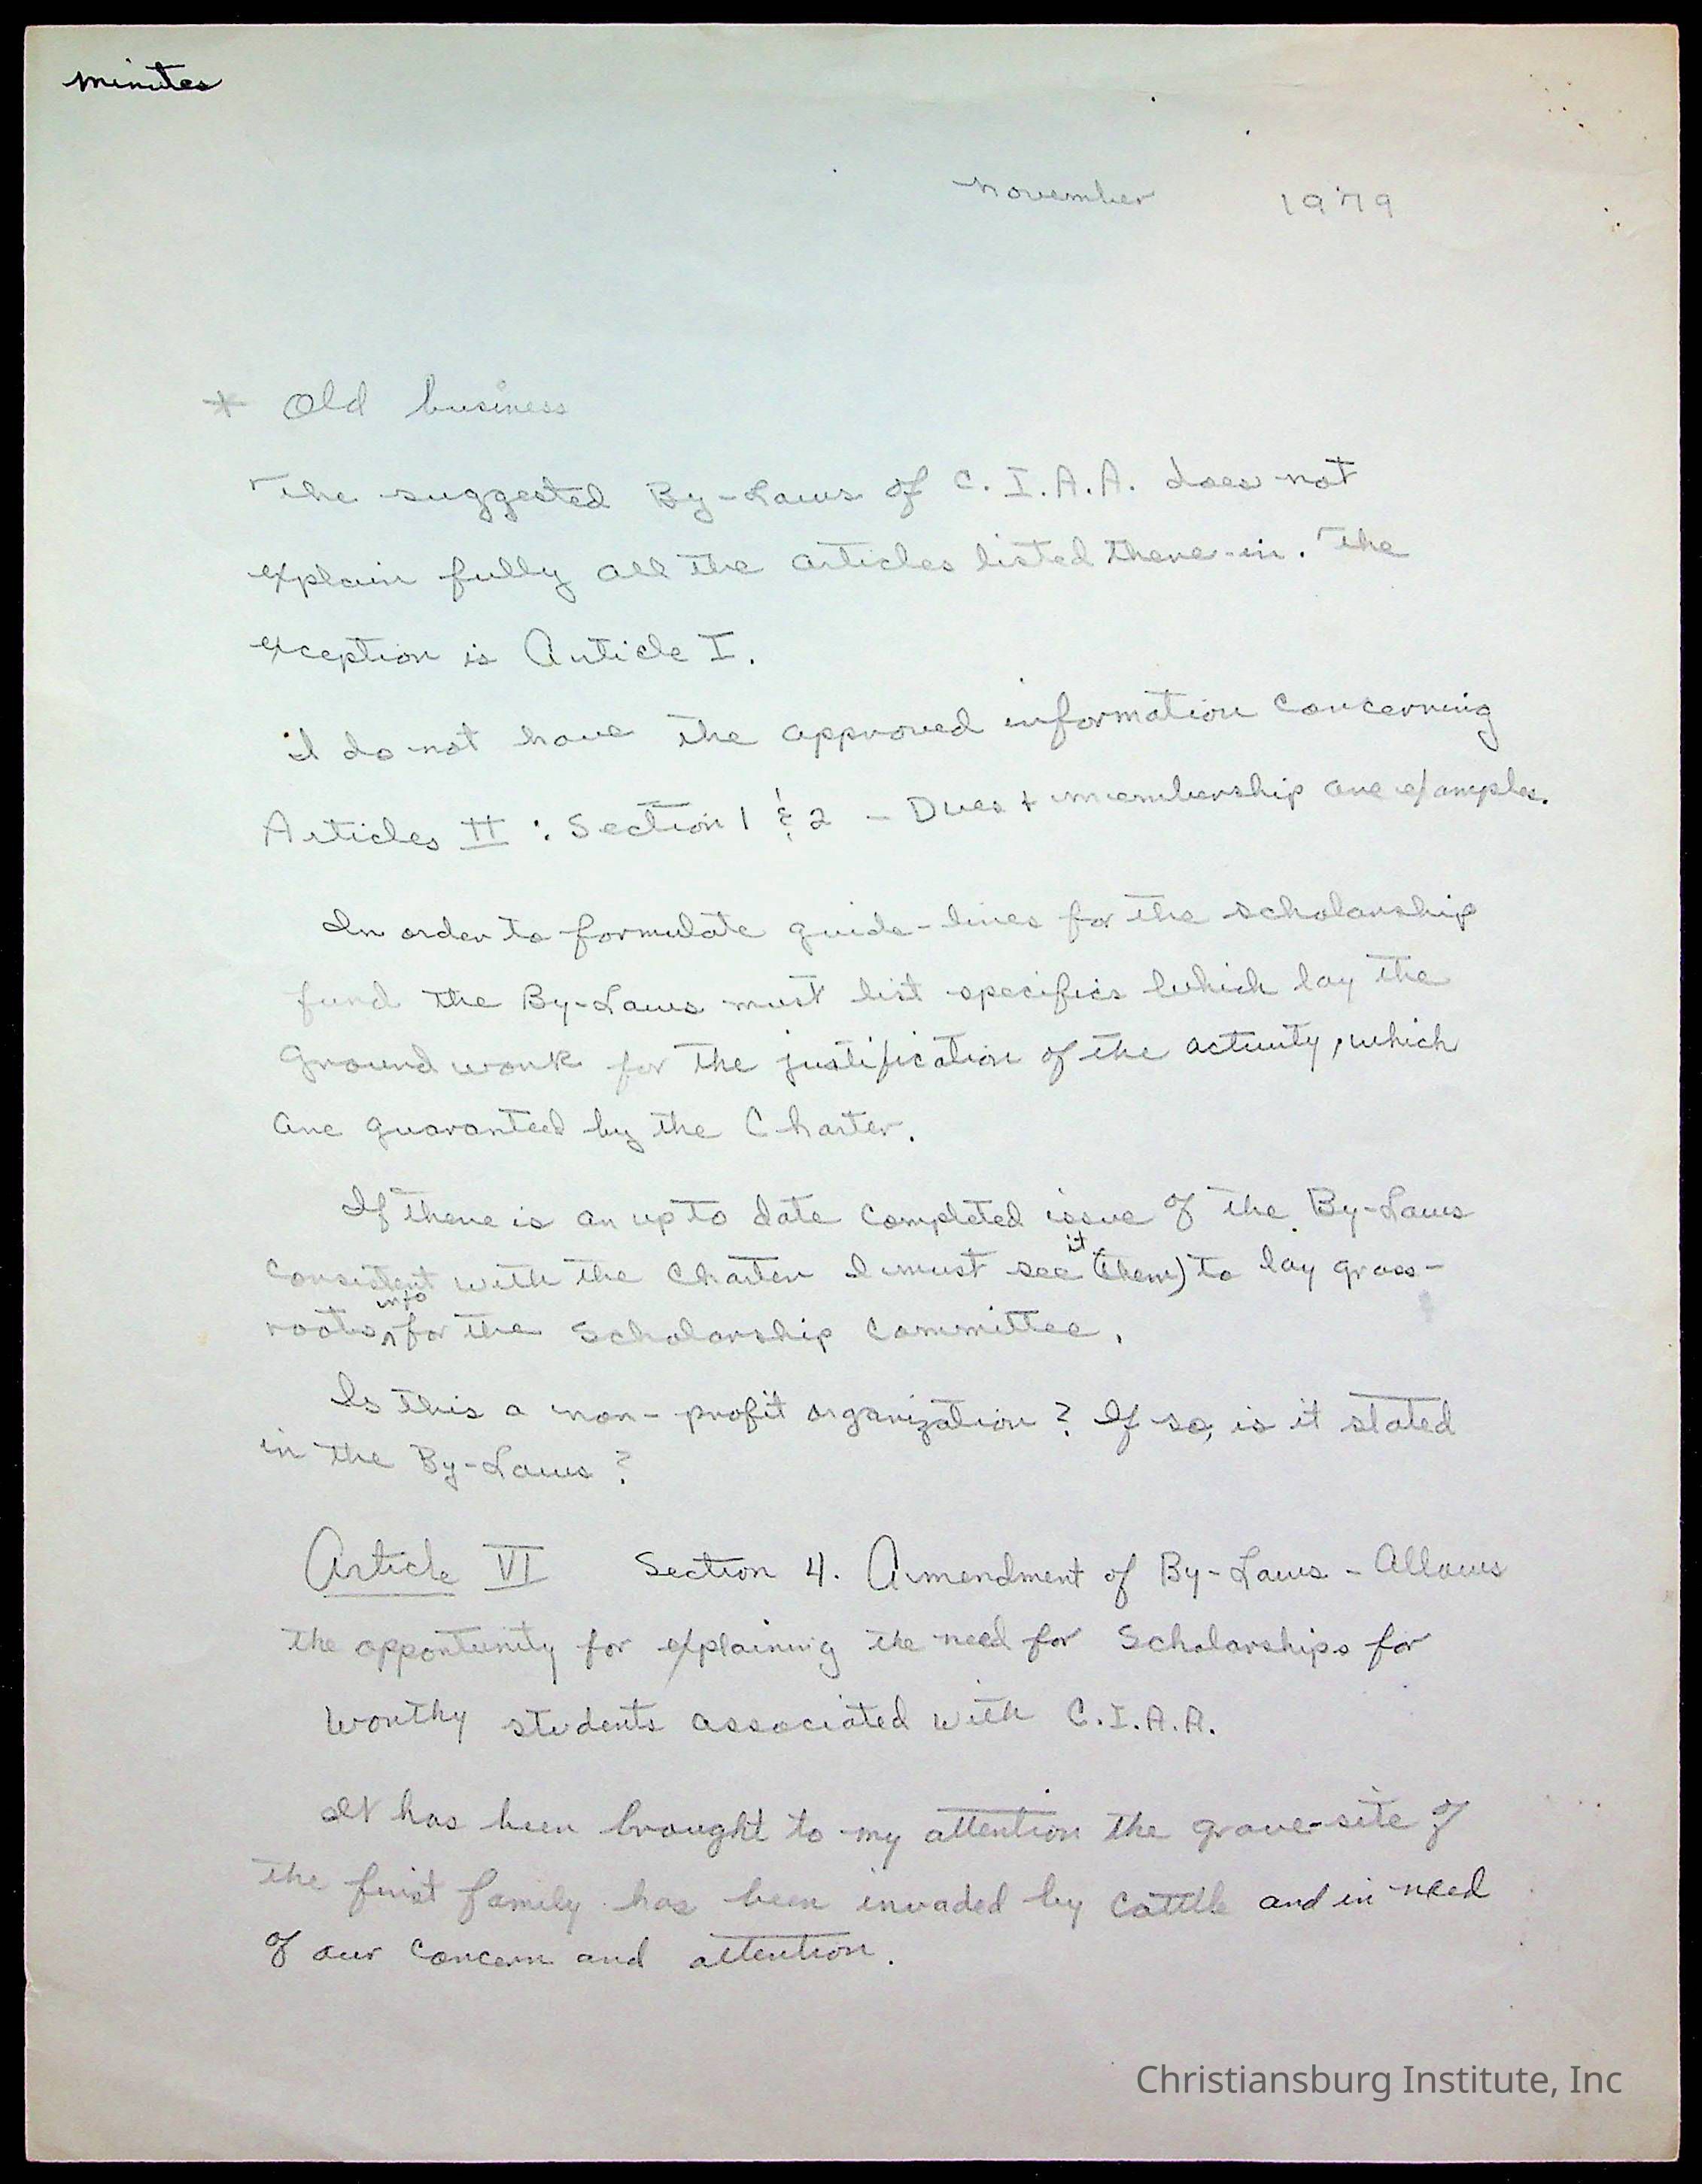 minutes
November 1979
* Old business
The suggested By-Laws of C.I.A.A. does not
explain fully all the articles listed there-in. The
exception is Article I.
I do not have the approved information concerning
Articles II : Section 1 & 2 - Dues + membership are examples.
In order to formulate guide-lines for the scholarship
fund the By-Laws must list specifics which lay the
Ground work for the justification of the activity, which
are guaranteed by the Charter.
If there is an up to date completed issue of the By-Laws
it
consistent with the Charter I must see (them) to lay grass-
info
roots ^ for the Scholarship Committee.
Is this a non-profit organization? If so, is it stated
in the By-Laws?
Article VI Section 4. Amendment of By-Laws - Allows
the opportunity for explaining the need for Scholarships for
worthy students associated with C.I.A.A.
It has been brought to my attention the grave-site of
the first family has been invaded by cattle and in need
of our concern and attention.
Christiansburg Institute, Inc